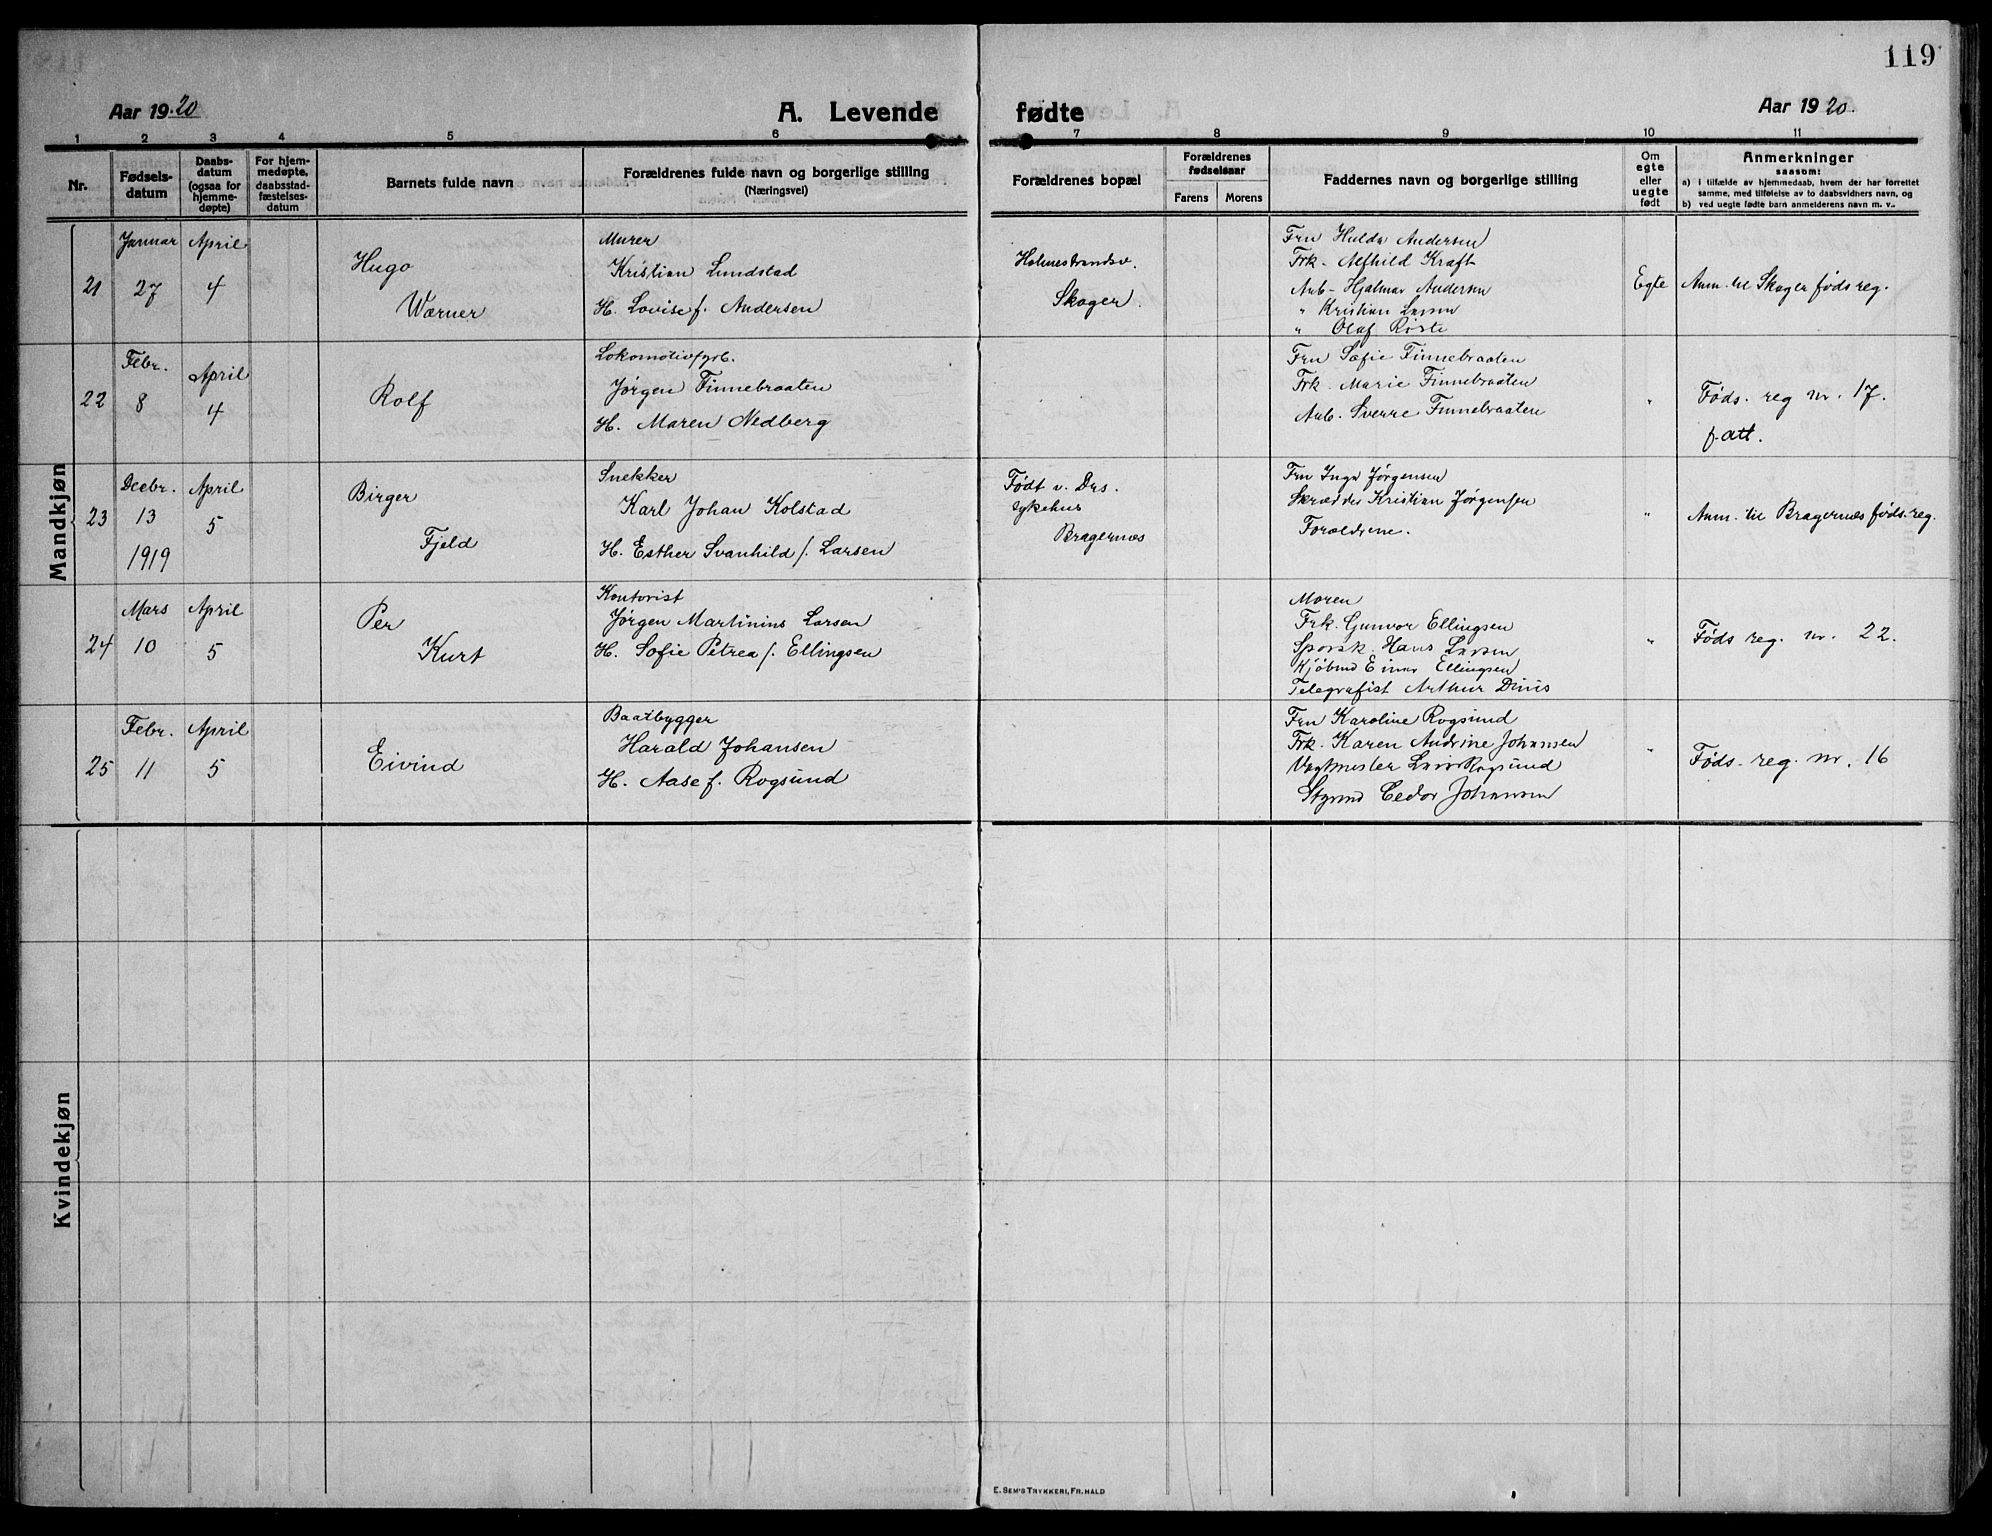 119
Aar 1920
A. Levende
fødte
Aar 1920.
1 2 3 4 5 6 7 8 9 10 11
Nr.
Fødsels-
datum
Daabs-
datum
(ogsaa for
hjemme-
døpte)
For hjem-
medøpte,
daabsstad-
fæstelses-
datum
Barnets fulde navn
Forældrenes fulde navn og borgerlige stilling
(Næringsvei)
Forældrenes bopæl
Forældrenes
fødselsaar
Farens
Morens
Faddernes navn og borgerlige stilling
Om
egte
eller
uegte
født
Anmerkninger
saasom:
a) i tilfælde av hjemmedaab, hvem der har forrettet
samme, med tilføielse av to daabsvidners navn, og
b) ved uegte fødte barn anmelderens navn m. v.
Mandkjøn
21
Januar
27
April
4
Hugo
Wærner
Murer
Kristian Lundstad
H. Lovise f. Andersen
Holmestrandsv.
Skoger.
Fru Hulda Andersen
Frk. Alfhild Kraft
Arb. Hjalmar Andersen
" Kristian Larsen
" Olaf Røste
Egte
Anm. til Skoger føds reg.
22
Febr.
8
April
4
Rolf
Lokomotivfyrb.
Jørgen Finnebraaten
H. Maren Nedberg
Fru Sofie Finnebraaten
Frk. Marie Finnebraaten
Arb. Sverre Finnebraaten
"
Føds. reg nr. 17.
f. att.
23
Decbr.
13
1919
April
5
Birger
Fjeld
Snekker
Karl Johan Kolstad
H. Esther Svanhild f. Larsen
Født v. Drs.
sykehus
Bragernæs
Fru Inga Jørgensen
Skrædder Kristian Jørgensen
Forældrene.
"
Anm. til Bragernæs føds. reg.
24
Mars
10
April
5
Per
Kurt
Kontorist
Jørgen Martinius Larsen
H. Sofie Petrea f. Ellingsen
Moren
Frk. Gunvor Ellingsen
Hans Larsen
Kjøbmd Einar Ellingsen
Telegrafist Arthur
"
Føds reg. nr. 22.
25
Febr.
11
April
5
Eivind
Baatbygger
Harald Johansen
H. Aase f. Rogsund
Fru Karoline Rogsund
Frk. Karen Andrine Johansen
Vagtmester Lars Rogsund
Styrmd Johansen
"
Føds. reg. nr. 16
Kvindekjøn
E. SEM'S TRYKKERI, FR.HALD